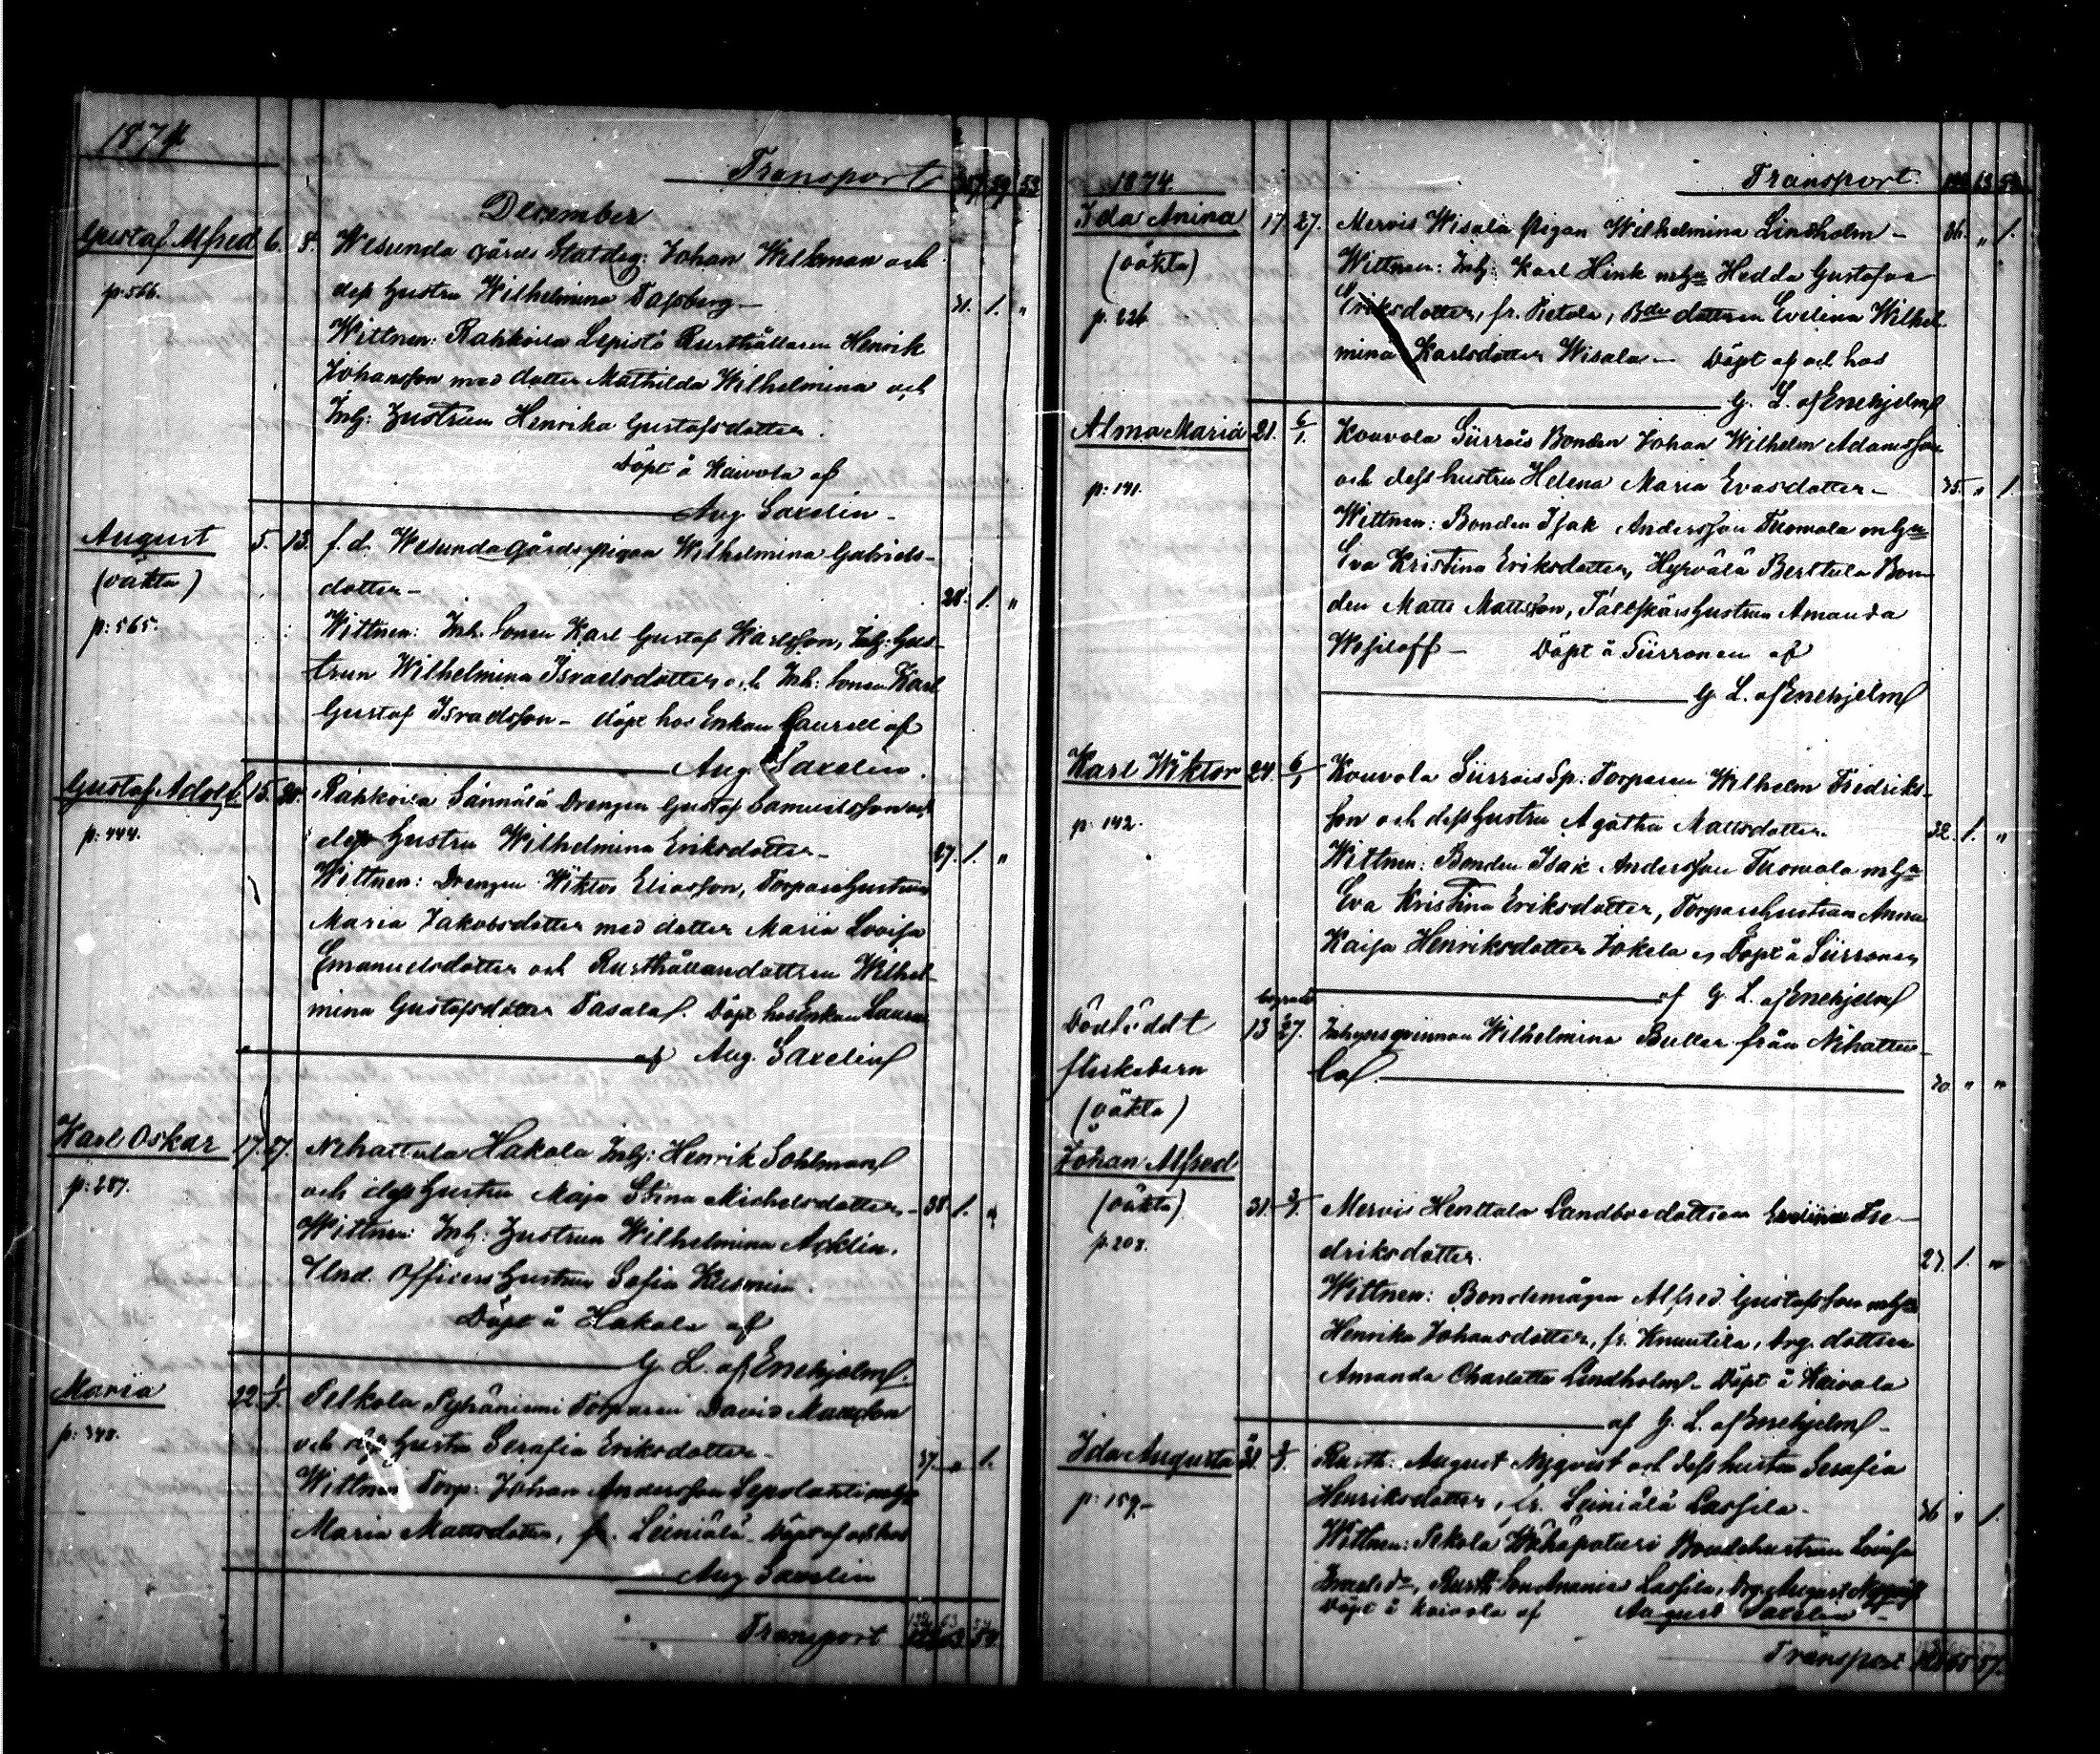 1874
Transport 59 53
December
Gustaf Alfred 6. 8. Wesunda gårds Statdrg: Johan Wilkman och
p. 566. dess hustru Wilhelmina Tassberg — 31. 1. "
Wittnen: Rahkoila Lepistö Rusthållaren Henrik
Johansson med dotter Mathilda Wilhelmina och
Inh: hustrun Henrika Gustafsdotter.
Döpt å Kaivola af
Aug. Saxelin —
August 5. 13. f.d. Wesunda gårds pigan Wilhelmina Gabriels-
(oäkta) dotter — 28. 1. "
p: 565. Wittnen: Inh. Sonen Karl Gustaf Karlsson, Inh: hus-
trun Wilhelmina Israelsdotter och Inh: Sonen Karl
Gustaf Israelsson — döpt hos Enkan Laurell af
Aug. Saxelin.
Gustaf Adolf 15. Rahkoila Sännälä Drengen Gustaf Samuelsson och
p: 444. dess hustru Wilhelmina Eriksdotter — 27. 1. "
Wittnen: Drengen Wiktor Eliasson, Torpare hustrun
Maria Jakobsdotter med dotter Maria Lovisa
Emanuelsdotter och Rusthållaredottren Wilhel-
mina Gustafsdotter Tasala. Döpt hos Enkan
af Aug. Saxelin
Karl Oskar 17. 27. Nihattula Hakola Inh: Henrik Sohlman
p: 287. och dess hustru Maja Stina Michelsdotter — 38. 1. "
Wittnen: Inh: hustrun Wilhelmina Acklin.
Und. Officers hustrun Sofia
Döpt å Hakola af
G. L. af Enehjelm.
Maria 22. 1/1. Pelkola Pyhäniemi Torparen David
p: 348. och dess hustru Serafia Eriksdotter — 37. " 1.
Wittnen Torp: Johan Andersson Lepolahti mh
Maria Mattsdotter, fr. Leiniälä. Döpt af och hos
Aug Saxelin
Transport
1874. Transport.
Ida Anina 17. 27. Mervis Wisala Pigan Wilhelmina Lindholm — 36. " 1.
(oäkta) Wittnen: Inh: Karl Henk mh Hedda Gustafva
p. 226 Eriksdotter, fr. Pietola, Bde dottren Evelina Wilhel-
mina Karlsdotter Wisala — Döpt af och hos
G. L. af Enehjelm
Alma Maria 21. 6/1. Kouvola Siirrois Bonden Johan Wilhelm Adamsson
p: 141. och dess hustru Helena Maria Evasdotter — 35. " 1.
Wittnen: Bonden Isak Andersson Tuomola mh
Eva Kristina Eriksdotter, Hyrvälä Berttula Bon-
den Matts Mattsson, Fältskärs hustrun Amanda
Wisiloff — Döpt å Siirronen af
G. L. af Enehjelm
Karl Wiktor 24. 6/1 Kouvola Siirrois Sp: Torparen Wilhelm Fredriks-
p: 142. son och dess hustru Agatha Mattsdotter. 32. 1. "
Wittnen: Bonden Isak Andersson Tuomola mh
Eva Kristina Eriksdotter, Torpare hustrun Anna
Kaisa Henriksdotter Jokela. Döpt å Siirronen
af G. L. af Enehjelm
begrafd
Dödfödt 13 27. Inhyses qvinnan Wilhelmina Buller från Nihattu-
flickebarn la. 30. " "
(oäkta)
Johan Alfred
(oäkta) 31. 3/1. Mervis Henttala Landboedottren Evelina Fre-
p. 208. driksdotter. 27. 1. "
Wittnen: Bondemågen Alfred Gustafsson mh
Henrika Johansdotter, fr. Knuutila, Arg. dottren
Amanda Charlotta Lindholm. Döpt å Kaivola
af G. L. af Enehjelm —
Ida Augusta 31. Rusth: August Nyqvist och dess hustru Serafia
p: 159 — Henriksdotter, fr. Leiniälä Lassila. 36 " 1.
Wittnen: Pelkola Wähäpaturi Bondehustrun Lovisa
Israelsdr, Rusth. Son Ananias Lassila, Drg. August
Döpt å Kaivola af August Saxelin —
Transport